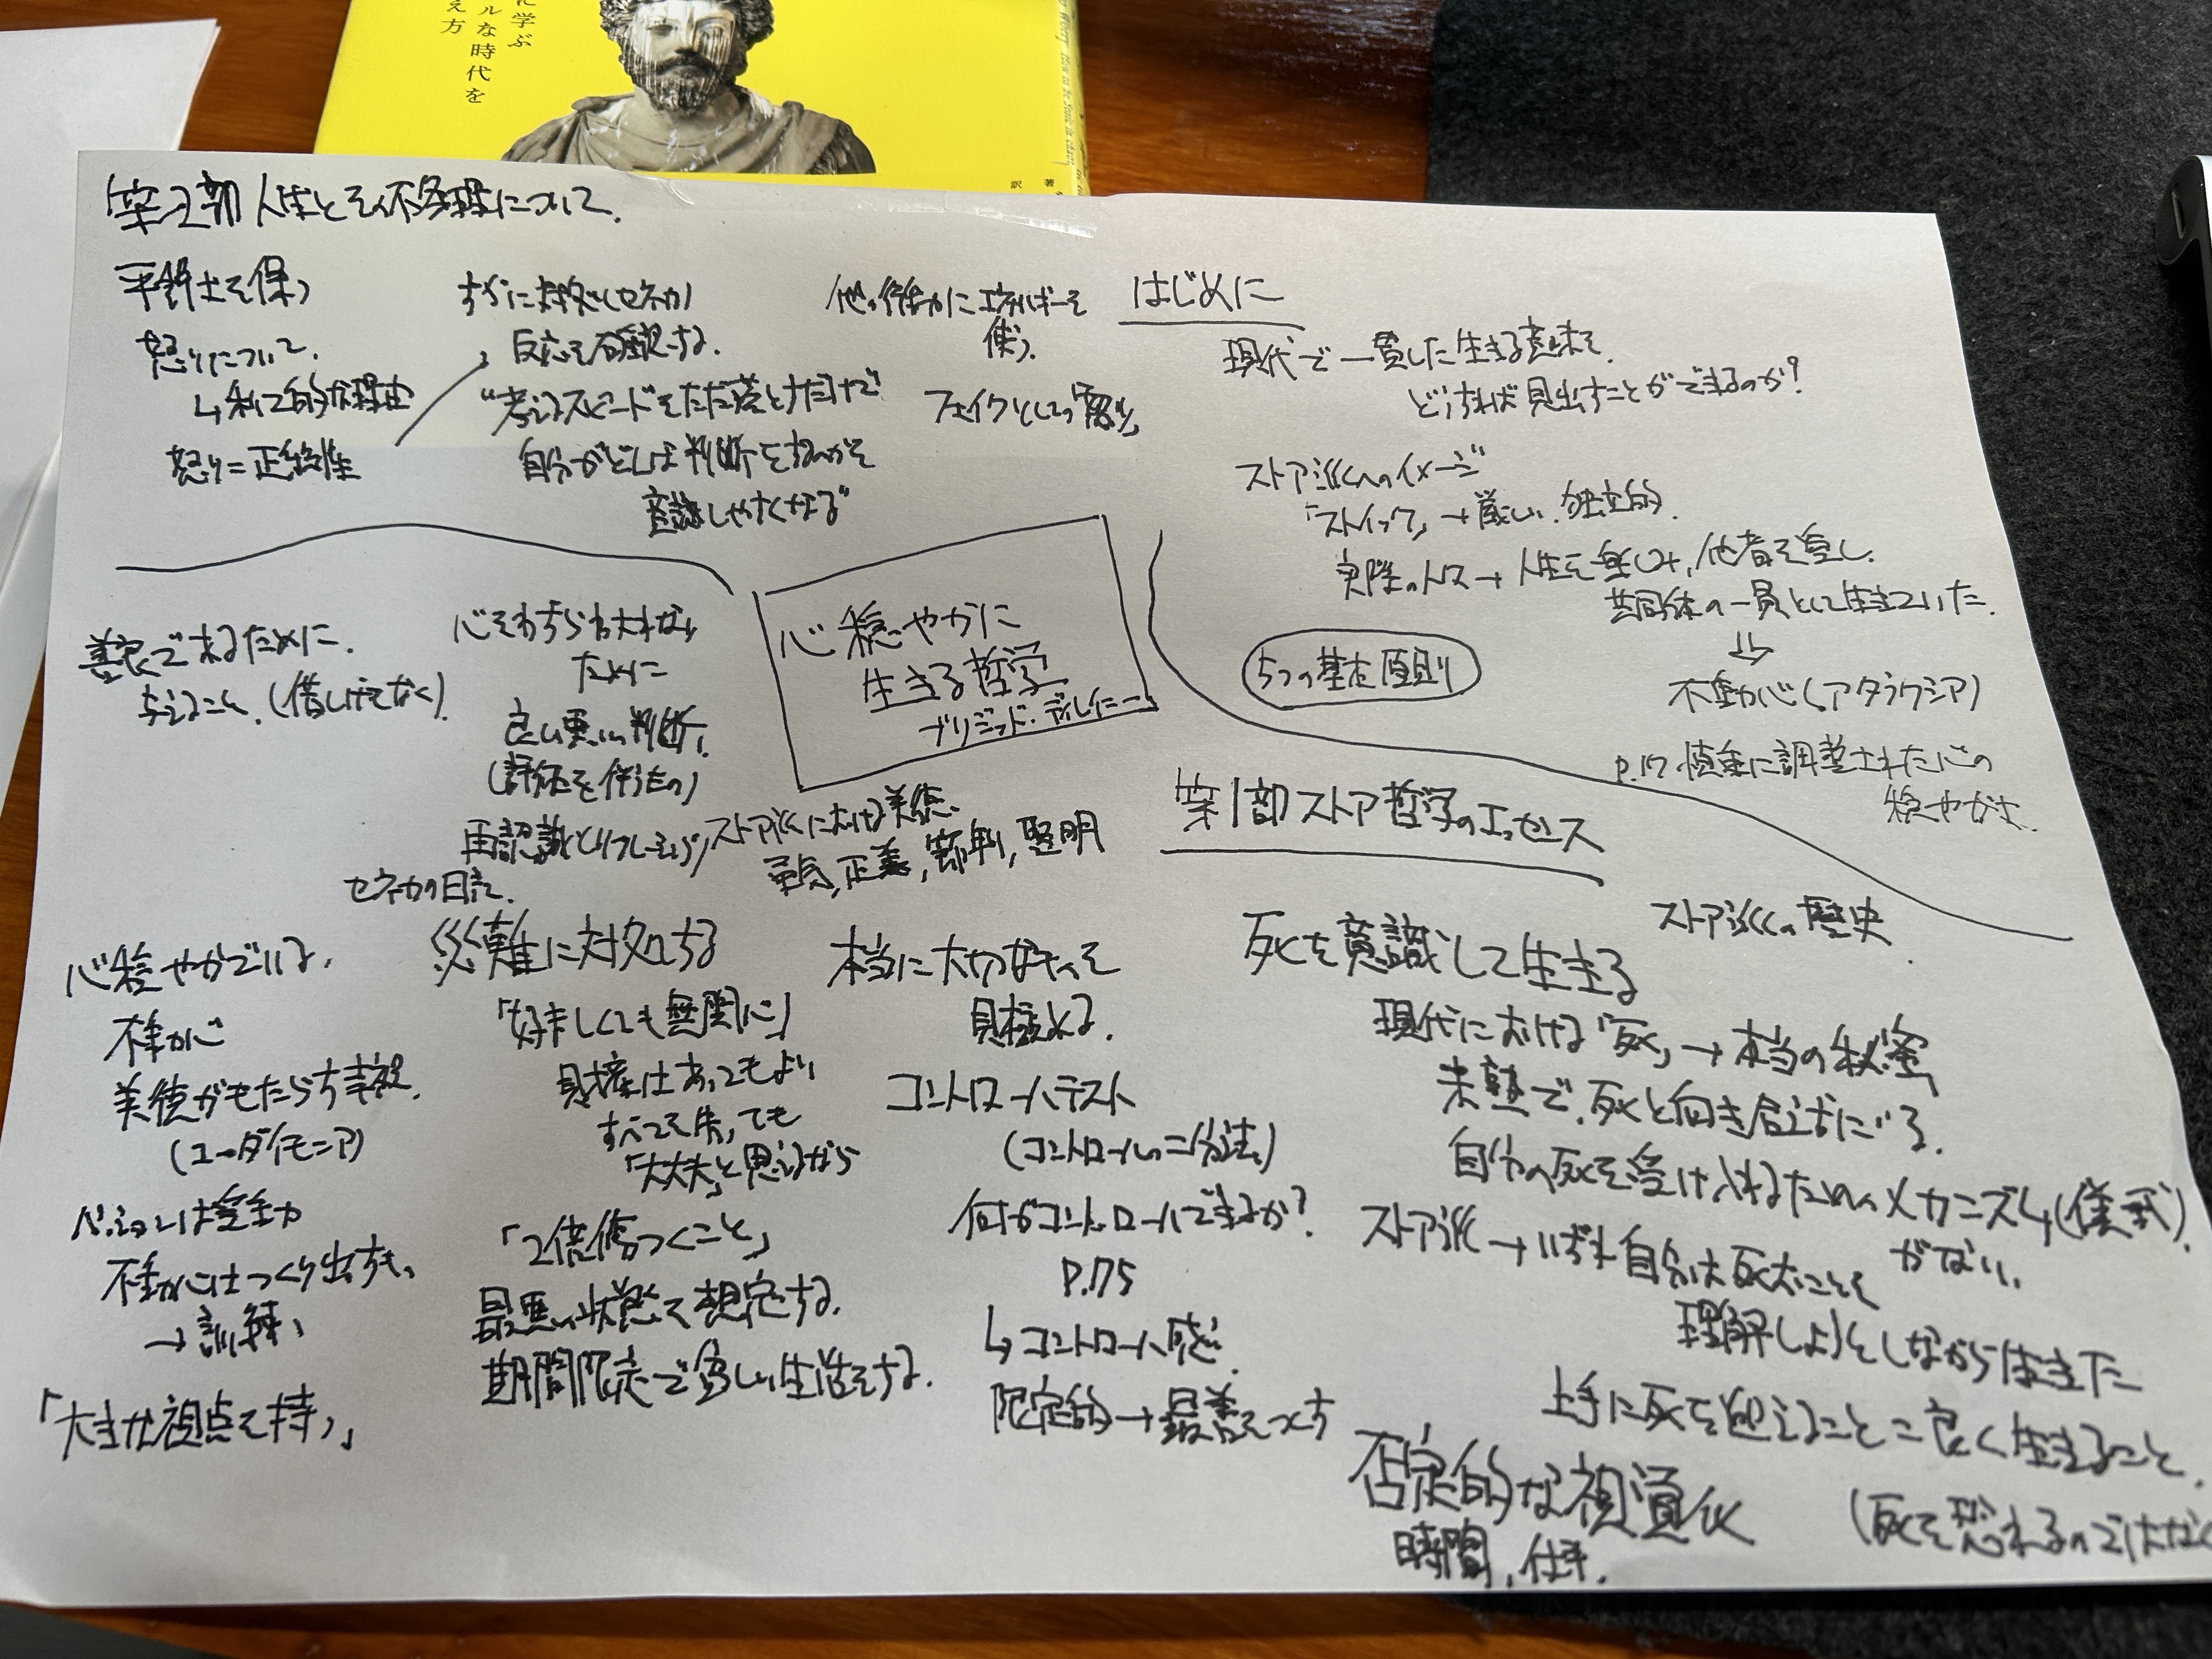 に学ぶ
ルな時代を
え方
著
訳
心穏やかに
生きる哲学
ブリジッド・ディレイニー
はじめに
現代で一貫した生きる意味を
どうすれば見出すことができるのか?
ストア派へのイメージ
「ストイック」→厳しい、独立的
実際の人々→人生を楽しみ、他者を愛し、
共同体の一員として生きていた。
⇓
不動心(アタラクシア)
P.17 慎重に調整された心の
穏やかさ
5つの基本原則
第1部 ストア哲学のエッセンス
ストア派の歴史
死を意識して生きる
現代における「死」→本当の秘密
未熟で、死と向き合えずにいる。
自分の死を受け入れるためのメカニズム(儀式)
がない。
ストア派→いずれ自分は死ぬことを
理解しようとしながら生きた
上手に死を迎えること=良く生きること。
(死を恐れるのではなく
否定的な視覚化
時間、仕事。
本当に大切なものを
見極める。
コントロールテスト
(コントロールの二分法)
何がコントロールできるか?
P.75
↳コントロール感
限定的→最善をつくす
災難に対処する
「好ましくても無関心」
財産はあってもよい
すべてを失っても
「大丈夫」と思えるから
「2倍傷つくこと」
最悪の状態を想定する。
期間限定で貧しい生活をする。
ストア派における美徳、
勇気、正義、節制、賢明
心をわずらわされない
ために
良い悪いの判断、
(評価を伴うもの)
再認識とリフレーミング
セネカの日記
善良であるために、
与えること、(借しげもなく)
心穏やかでいる。
不動心
美徳がもたらす幸福
(ユーダイモニア)
パッションは受動
不動心はつくり出すもの
→訓練
「大きな視点を持つ」
第2部 人生とその不条理について。
平静さを保つ
怒りについて。
↳利己的な理由
怒り=正統性
すぐに対処(セネカ)
反応を確認する。
“考えるスピードをただ落とすだけで
自分がどんな判断をするのかを
意識しやすくなる”
他の行動にエネルギーを
使う。
フェイクとしての「怒り」